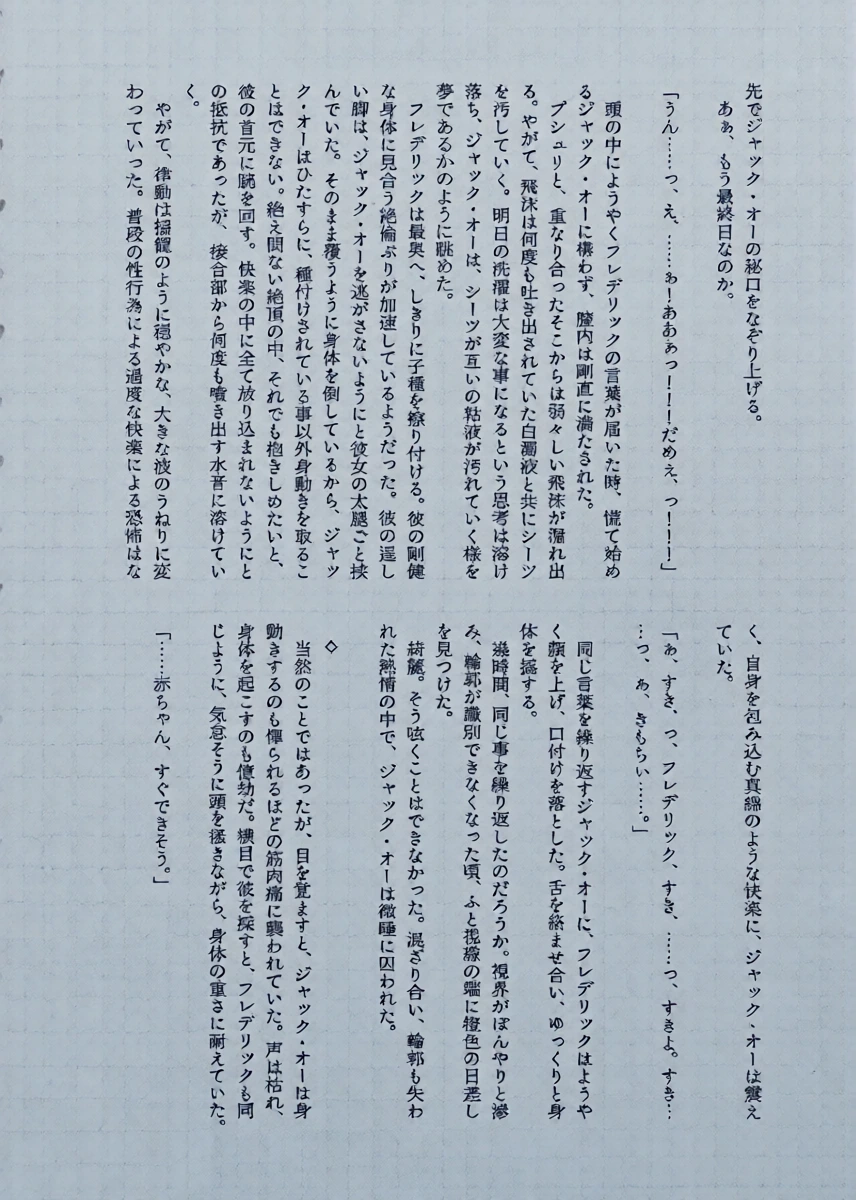 先でジャック・オーの秘口をなぞり上げる。
あぁ、もう最終日なのか。
「うん……っ、え、……ぁ！ああぁっ！！！だめえ、っ！！！」
頭の中にようやくフレデリックの言葉が届いた時、慌て始め
るジャック・オーに構わず、膣内は剛直に満たされた。
プシュリと、重なり合ったそこからは弱々しい飛沫が漏れ出
る。やがて、飛沫は何度も吐き出されていた白濁液と共にシーツ
を汚していく。明日の洗濯は大変な事になるという思考は溶け
落ち、ジャック・オーは、シーツが互いの粘液が汚れていく様を
夢であるかのように眺めた。
フレデリックは最奥へ、しきりに子種を擦り付ける。彼の剛健
な身体に見合う絶倫ぶりが加速しているようだった。彼の逞し
い脚は、ジャック・オーを逃がさないようにと彼女の太腿ごと挟
んでいた。そのまま覆うように身体を倒しているから、ジャッ
ク・オーはひたすらに、種付けされている事以外身動きを取るこ
とはできない。絶え間ない絶頂の中、それでも抱きしめたいと、
彼の首元に腕を回す。快楽の中に全て放り込まれないようにと
の抵抗であったが、接合部から何度も噴き出す水音に溶けてい
く。
やがて、律動は揺籠のように穏やかな、大きな波のうねりに変
わっていった。普段の性行為による過度な快楽による恐怖はな
く、自身を包み込む真綿のような快楽に、ジャック・オーは震え
ていた。
「ぁ、すき、っ、フレデリック、すき、……っ、すきよ。すき…
…っ、ぁ、きもちい……。」
同じ言葉を繰り返すジャック・オーに、フレデリックはようや
く顔を上げ、口付けを落とした。舌を絡ませ合い、ゆっくりと身
体を揺する。
幾時間、同じ事を繰り返したのだろうか。視界がぼんやりと滲
み、輪郭が識別できなくなった頃、ふと視線の端に橙色の日差し
を見つけた。
綺麗。そう呟くことはできなかった。混ざり合い、輪郭も失わ
れた熱情の中で、ジャック・オーは微睡に囚われた。
◇
当然のことではあったが、目を覚ますと、ジャック・オーは身
動きするのも憚られるほどの筋肉痛に襲われていた。声は枯れ、
身体を起こすのも億劫だ。横目で彼を探すと、フレデリックも同
じように、気怠そうに頭を掻きながら、身体の重さに耐えていた。
「……赤ちゃん、すぐできそう。」